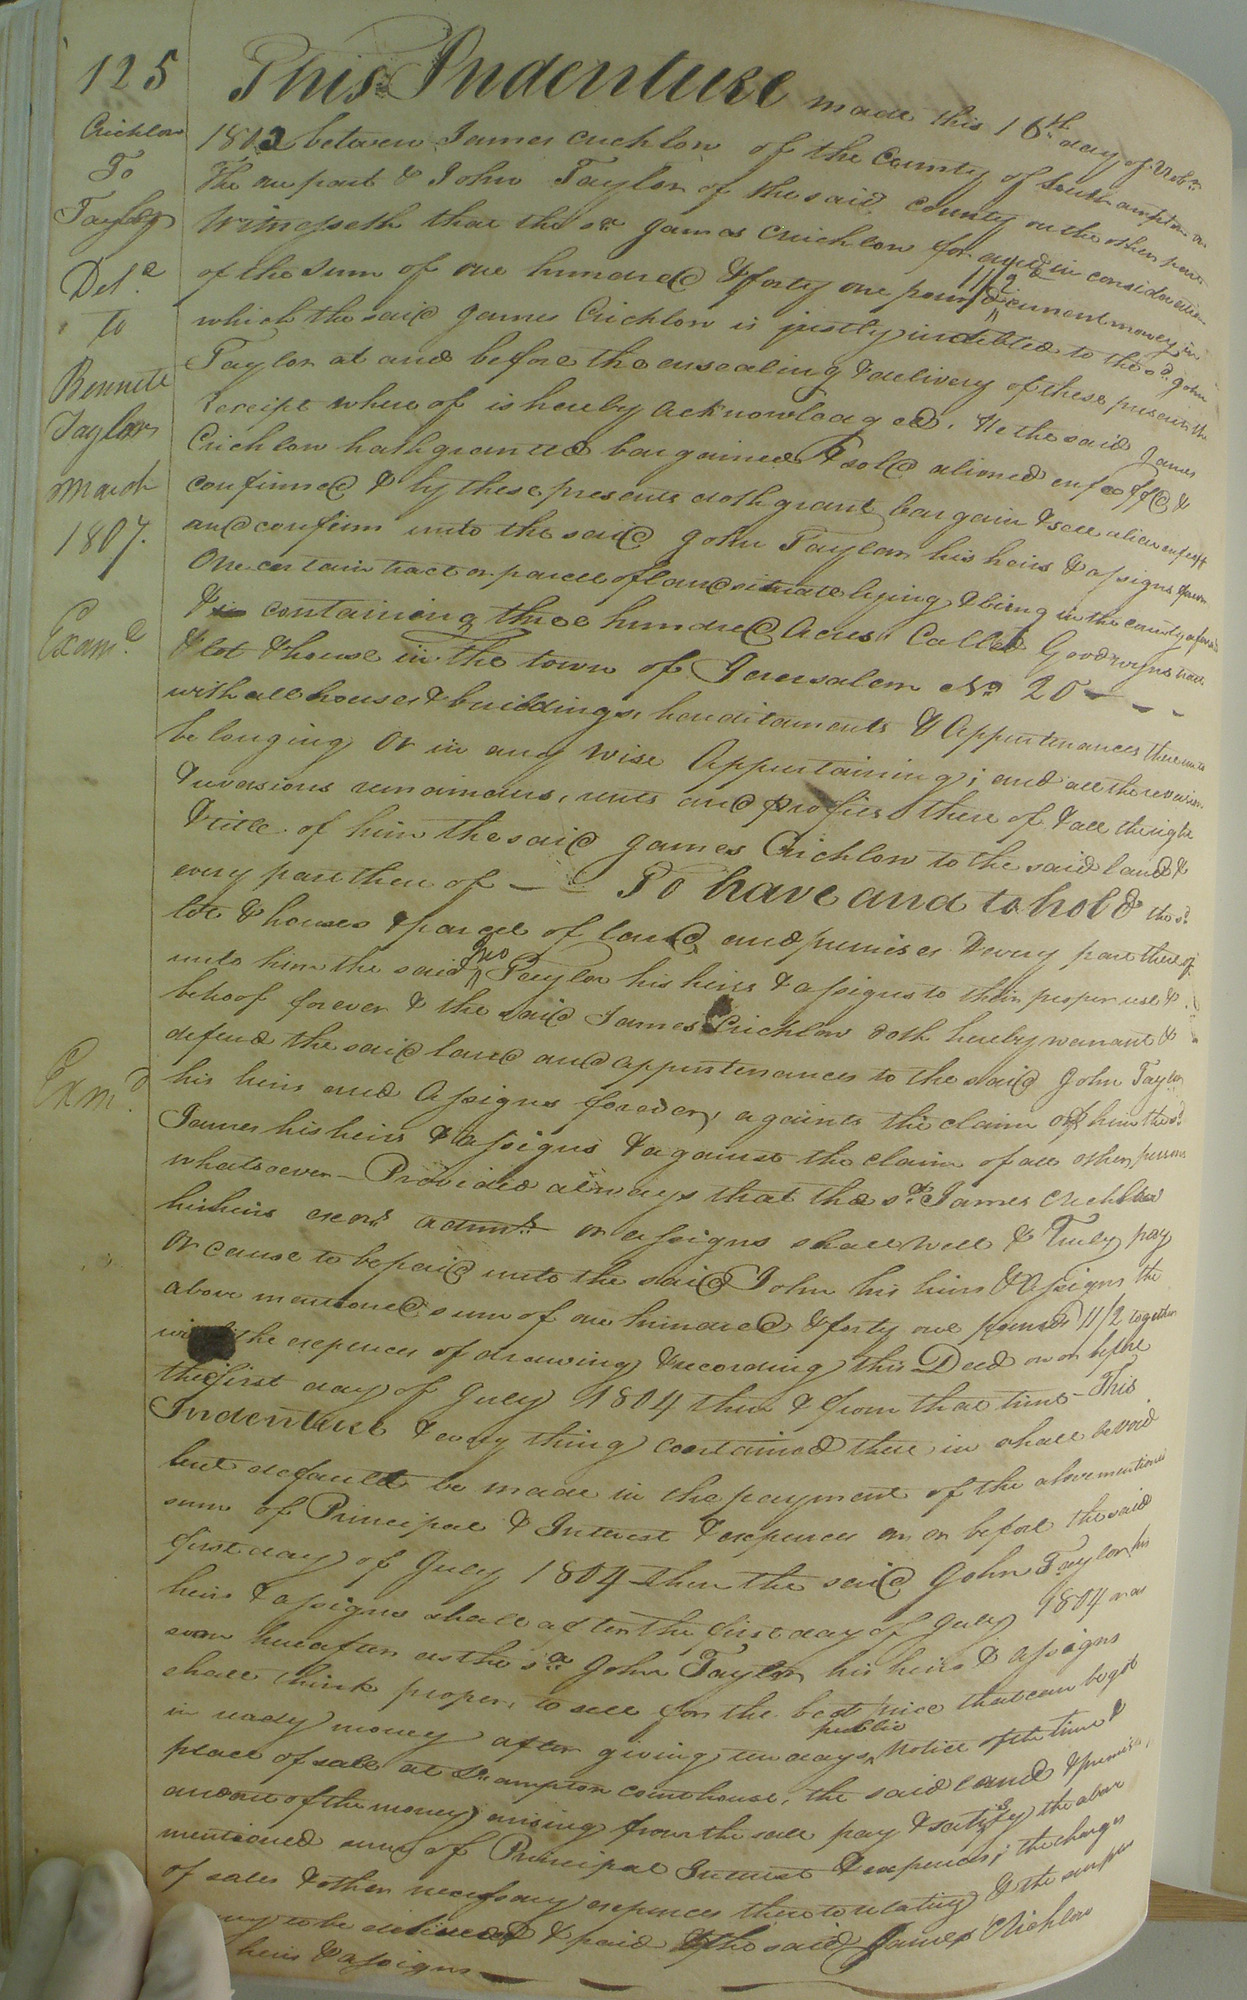 125
Crichlow
To
Taylor
Del.d
to
Bennett
Taylor
March
1807.
Exam.d
Exm.d
This Indenture made this 16th day of Nobr.
1803 between James Crichlow of the County of Southampton on
The one part & John Taylor of the said County on the other part
Witnesseth that the sd. James Crichlow for and in consideration
of the sum of one hundred & forty one pound 11/2 current money in
which the said James Crichlow is justly indebted to the sd. John
Taylor at and before the ensealing & delivery of these presents the
receipt where of is hereby acknowledged. He the said James
Crichlow hath granted bargained & sold aliened enfeoffed &
confirmed & by these presents doth grant bargain & sell alien enfeoff
and confirm unto the said John Taylor his heirs & assigns forever
One certain tract or parcel of land situate lying & being in the county aforesaid
& containing three hundred Acres Called Goodwyns
& lot & house in the town of Jerusalem No. 20 - - -
with all houses & buildings, hereditaments & Appurtenances thereunto
belonging Or in any wise Appurtaining; and all the reversion
& reversions remainders, rents and profits there of & all the right
& title of him the said James Crichlow to the said land &
every part there of - - To have and to hold the sd.
lot & houses & parcel of land and premises & every part there of
unto him the said Jno Taylor his heirs & assigns to their proper use &
behoof forever & the said James Crichlow doth hereby warrant &
defend the said land and appurtenances to the said John Taylor
his heirs and Assigns forever, againts the claim of him the sd.
James his heirs & assigns & against the claim of all other persons
whatsoever - Provided always that the sd. James Crichlow
his heirs exors. admrs. or assigns shall well & Truly pay
Or cause to be paid unto the said John his heirs & Assigns the
above mentioned sum of one hundred & forty one pounds 11/2 together
with the expences of drawing & recording this Deed on or before
the first day of July 1804 then & from that time - This
Indenture & every thing contained there in shall be void
but default be made in the payment of the above mentioned
sum of Principal & Interest & expences on or before the said
first day of July 1804 then the said John Taylor his
heirs & assigns shall after the first day of July 1804 or as
soon hereafter as the sd. John Taylor his heirs & Assigns
shall think proper, to sell for the best price that can be got
in ready money after giving ten days public Notice of the time &
place of sale at So.ampton courthouse, the said land & premises,
and out of the money arising from the sale pay & satisfy the above
mentioned sum of Principal Interest & expences; the charges
of sales & other necessary expences there to relating & the surplus
to be delivered & paid to the said James Crichlow
heirs & assigns